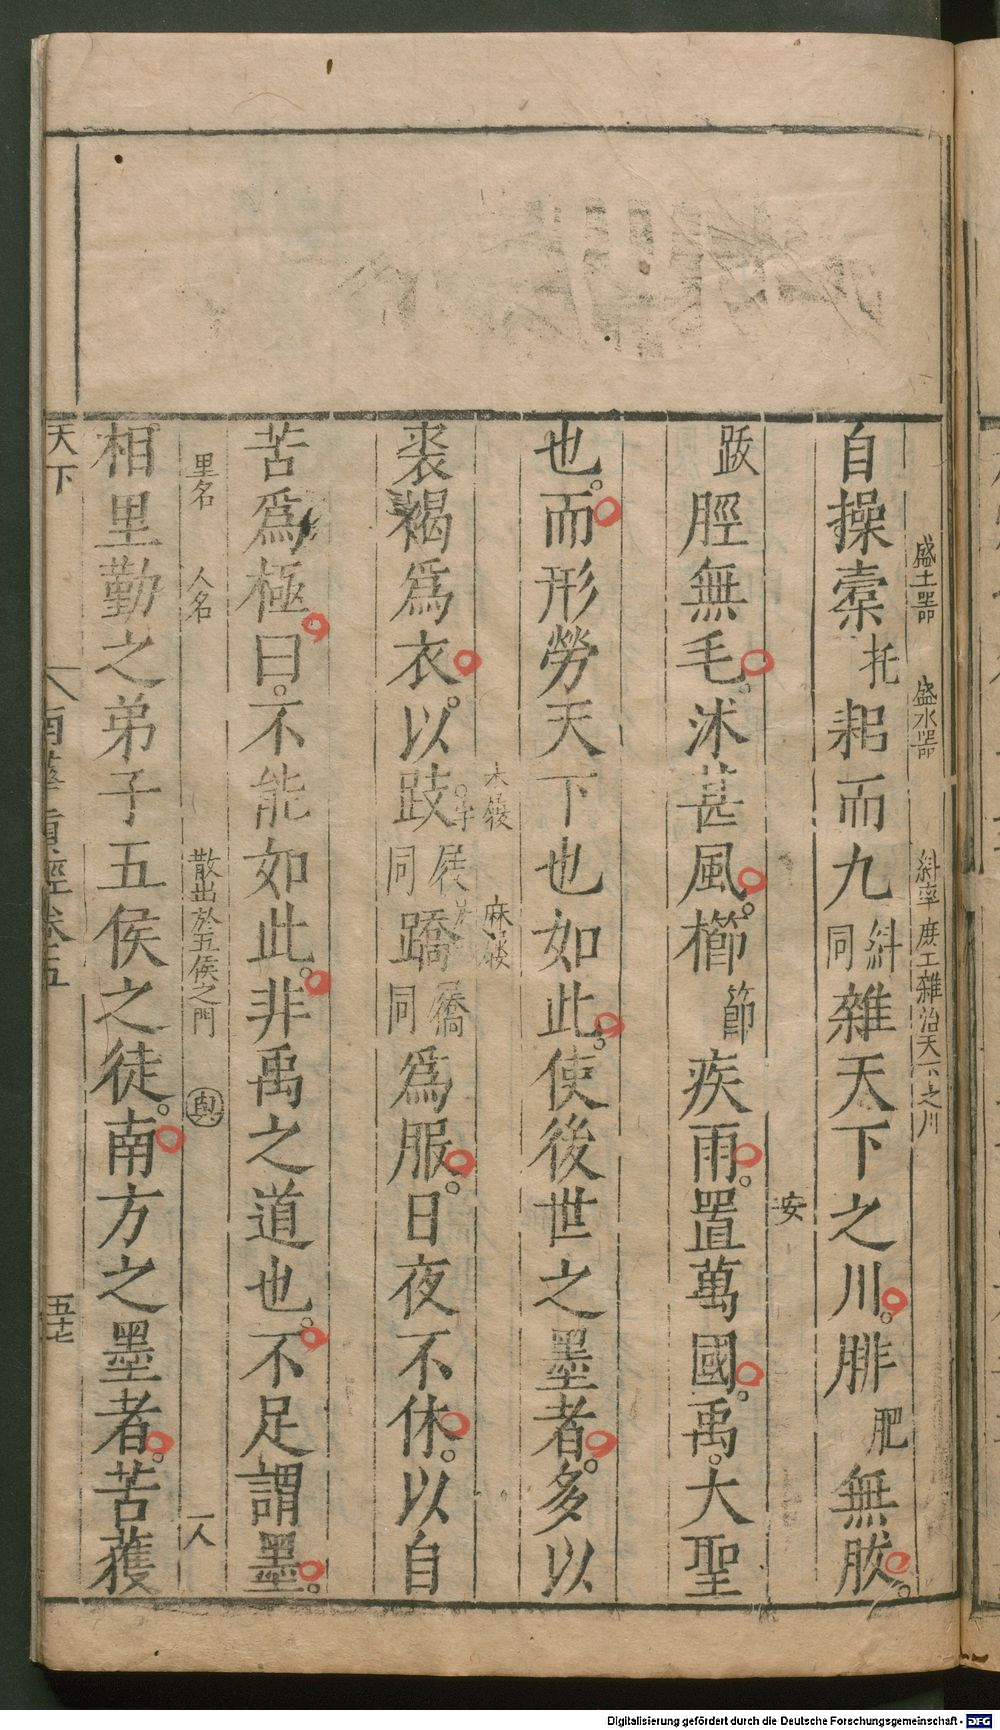 盛土器 盛水器 糾率 庶工雜治天下之川
自操橐托耜而九糾同雜天下之川。腓肥無胈。
安
跋脛無毛。沐甚風。櫛節疾雨。置萬國。禹。大聖
也。而形勞天下也如此。使後世之墨者。多以
木屐 麻屐
裘褐爲衣。以跂屐同蹻屩同爲服。日夜不休。以自
苦爲極。曰。不能如此。非禹之道也。不足謂墨。
里名 人名 散出於五侯之門 與 一人
相里勤之弟子五侯之徒。南方之墨者。苦獲
天下 八 南華真經卷五 五十七
Digitalisierung gefördert durch die Deutsche Forschungsgemeinschaft - DFG